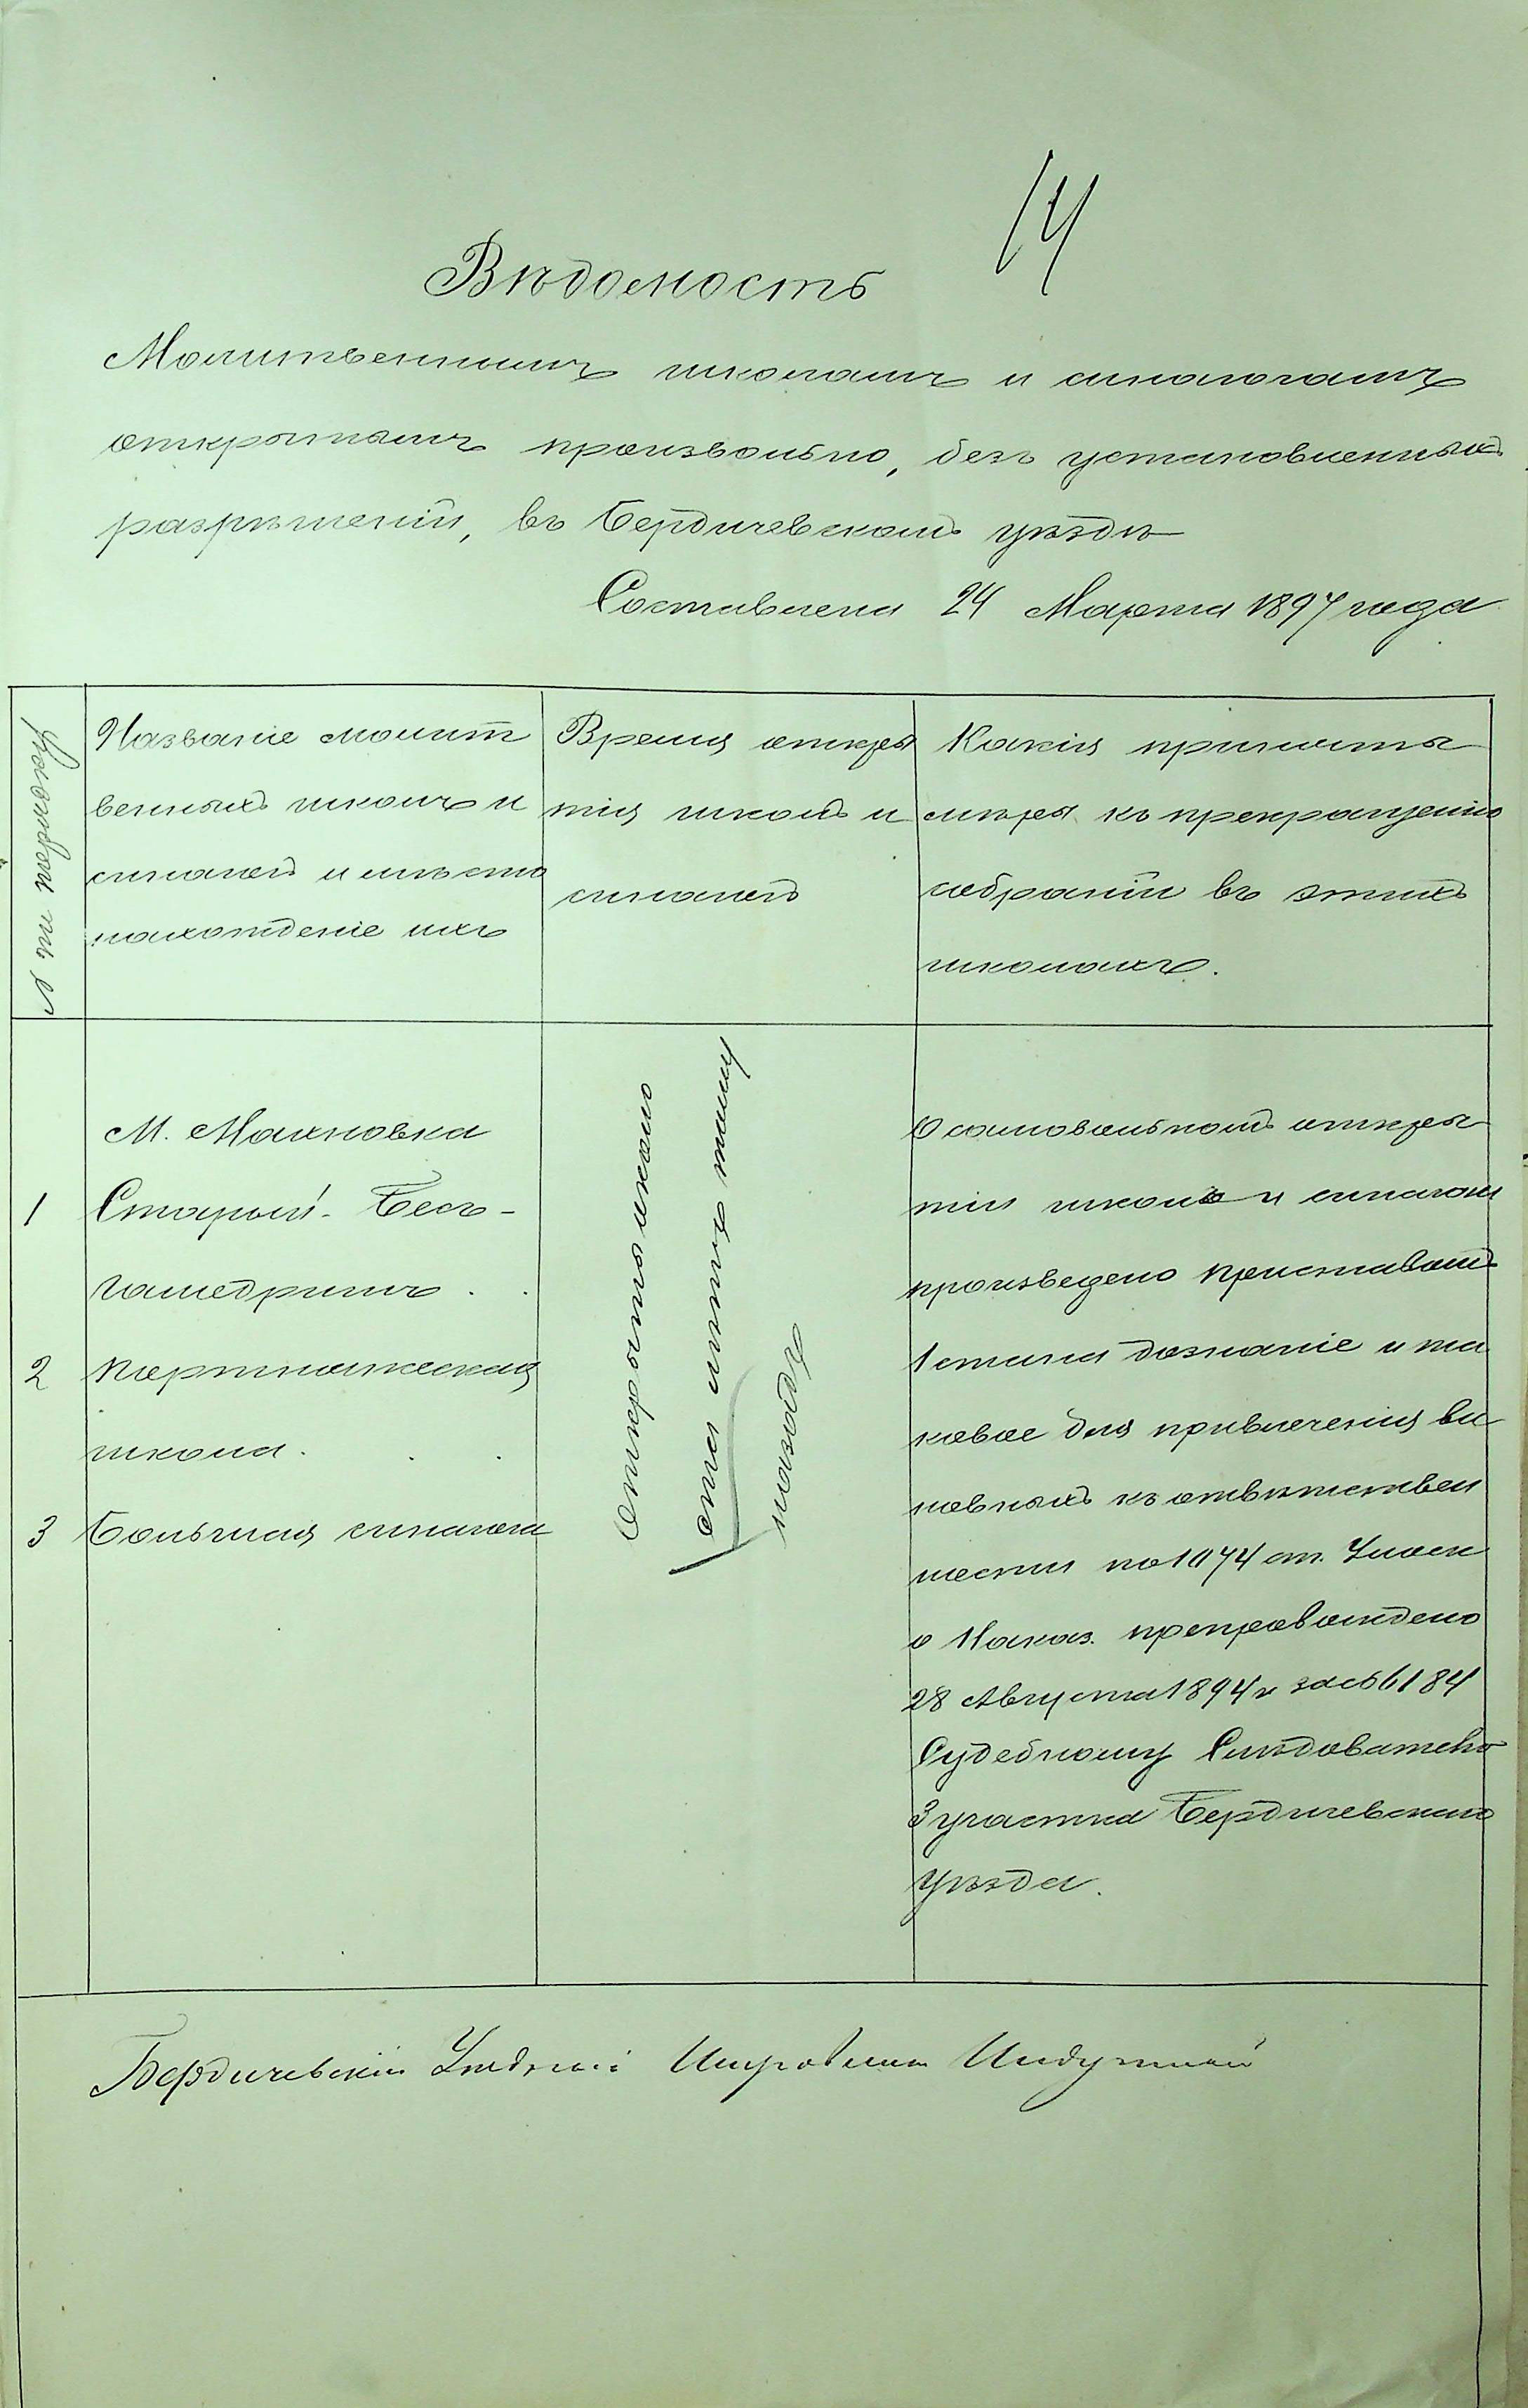 14
Вѣдомость
Молитвеннымъ школамъ и синагогамъ
открытымъ произвольно, безъ установленныхъ
разрѣшеній, въ Бердичевскомъ уѣздѣ
Составлена 24 Марта 1897 года
№ по порядку
Названіе молит
венныхъ школъ и
синагогъ и мѣсто
нахожденіе ихъ
Время откры
тія школъ и
синагогъ
Какія приняты
мѣры къ прекращенію
собраній въ этихъ
школахъ.
М. Махновка
1 Старый-Бесъ-
гамедримъ . .
2 Портняжеская
школа . . .
3 Большая синагога
Открыты около
ста лѣтъ тому
назадъ
О самовольномъ откры
тіи школъ и синагоги
произведено Приставомъ
1 стана дознаніе и та
ковое для привлеченія ви
новныхъ къ отвѣтствен
ности по 1074 ст. Улож
о Наказ. препровождено
28 Августа 1894 г за № 6184
Судебному Слѣдователю
3 участка Бердичевскаго
уѣзда.
Бердичевскій Уѣздный Исправникъ